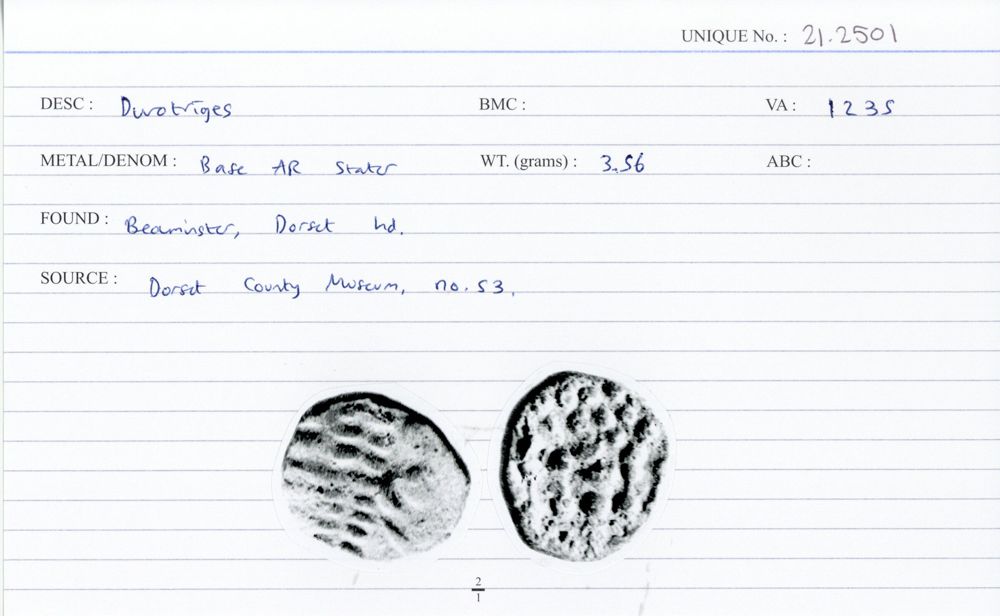 UNIQUE No. : 21.2501
DESC : Durotriges BMC : VA : 1235
METAL/DENOM : Base AR Stater WT. (grams) : 3.56 ABC :
FOUND : Beaminster, Dorset hd.
SOURCE : Dorset County Museum, no. 53.
2
1